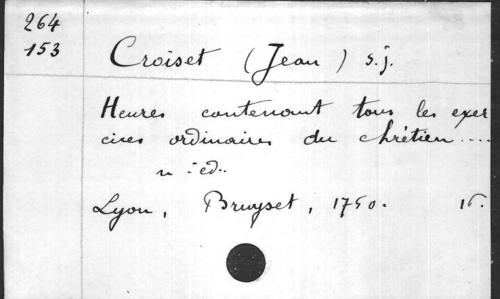 264
153
Croiset (Jean) s.j.
Heures contenant tous les exer
cices ordinaires du chrétien....
n - éd..
Lyon, Bruyset, 1750. 16.